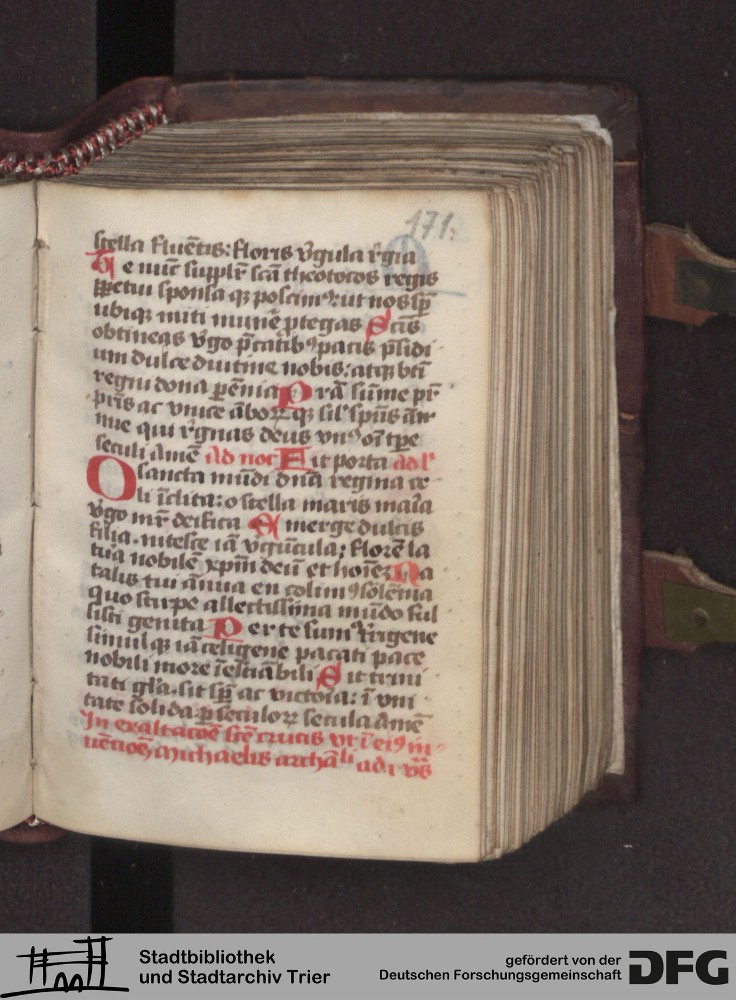 171.
stella fluẽtis: floris v̾gula r̾gia
Te nũc supplr̃ scã theotocos regis
ꝑpetui sponsa qꝫ poscimꝰ: ut nos sꝑ
ubiqꝫ miti munẽ ptegas Scĩs
obtineas v̾go p̃catibꝰ pacis p̃sidi
um dulce diutine nobis: atqꝫ bt̃i
regni dona ꝑẽnia Prã sũme pr̃
pñs ac vnice ãboꝝqꝫ sil̾ spũs
me qui r̾gnas deus vnꝰ oĩ tp̃e
seculi amẽ Ad noc̾ Fit porta ad l̾
O sancta mũdi dñã regina ce
li ĩclita: o stella maris maĩa
v̾go mr̃ deifica Emerge dulcis
filia. nitesce iã v̾gũcula: florẽ la
tura nobilẽ xp̃m deũ et hoĩeꝫ Na
talis tui ãnua en colimꝰ sõlẽnia
quo stirpe allectissima mũdo ful
sisti genita Per te sumꝰ t̃rigene
simul qꝫ iã celigene pacati pace
nobili more ĩestiãbili Sit trini
tati gl̃a. sit sꝑ ac victoia: ĩ vni
tate solida ꝑ seculoꝝ secula Amẽ
In exaltacõẽ scẽ crucis vt ĩ eiꝰ in-
uẽcioẽ Michaelis archãli ad. i. vẽs
Stadtbibliothek
und Stadtarchiv Trier
gefördert von der
Deutschen Forschungsgemeinschaft
DFG